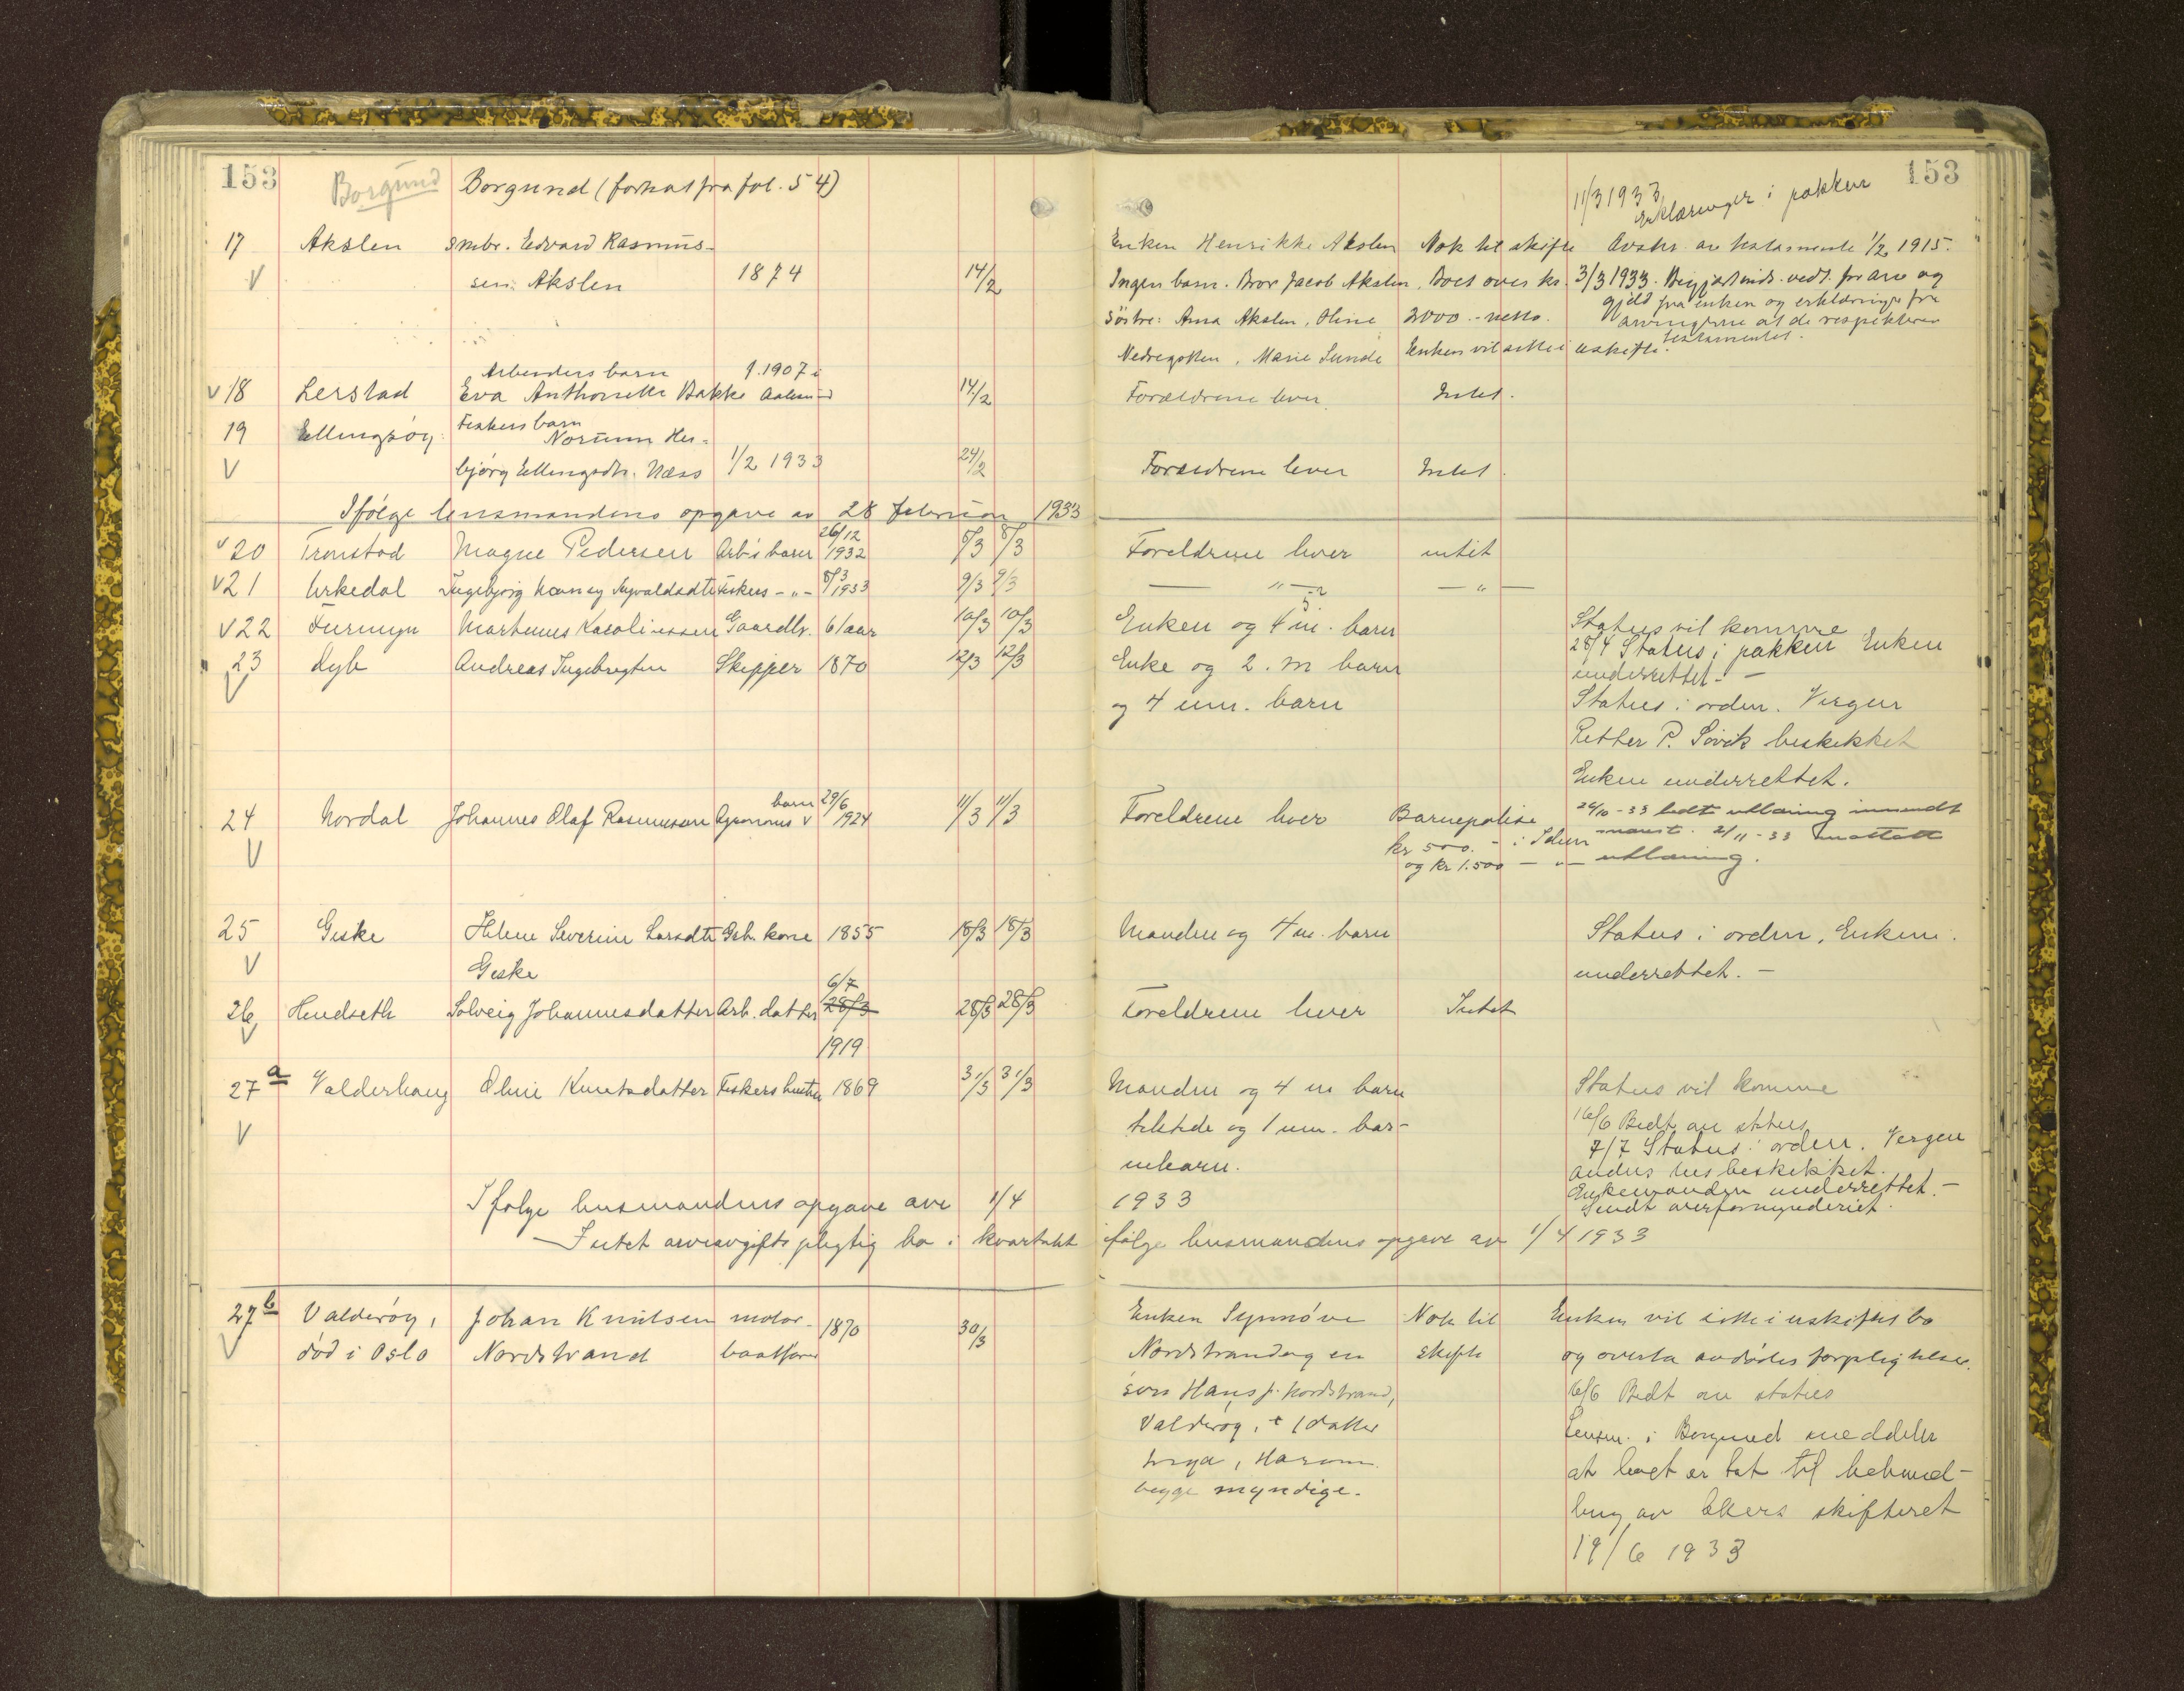 153 Borgund Borgund (forts. fra fol. 54) 153
11/3 1933
Erklæringer i pakken
17 Akslen smbr. Edvard Rasmus- Enken Henrikke Akslen Nok til skifte Avskr. av testamente 1/2 1915.
V sen Akslen 1874 14/2 Ingen barn. Bror Jacob Akslen, Boet over kr. 3/3 1933. Begjært vedt. for arv og
gjeld fra enken og erklæringer fra
søstre: Anna Akslen, Oline 2000.- netto. arvingerne at de respekterer
Nedregotten, Marie Sunde Enken vil sitte i uskifte. testamentet.
Arbeiders barn f. 1907 i
V 18 Lerstad Eva Anthonette Bakke Aalesund 14/2 Forældrene lever Intet.
19 Ellingsøy Fiskers barn
Norunn Her-
V bjørg Ellingsdtr. Næss 1/2 1933 24/2 Forældrene lever Intet.
Ifølge lensmandens opgave av 28 februar 1933
V 20 Tronstad Magne Pedersen Arb's barn 26/12 1932 8/3 8/3 Foreldrene lever intet
V 21 Urkedal Ingebjørg Nanny Sigvaldsdtr Fiskers - " - 8/3 1933 9/3 9/3 — " — — " —
5
V 22 Furmyr Martinus Karolinussen Gaardbr. 61 aar 10/3 10/3 Enken og 4 m. barn Status vil komme
28/4 Status i pakken Enken
underrettet. —
23 Dyb Andreas Ingebrigtsen Skipper 1870 12/3 12/3 Enke og 2 m barn
V og 4 um. barn Status i orden. Vergen
Petter P. Søvik beskikket
Enken underrettet.
24 Nordal Johannes Olaf Rasmussen Agronoms barn 29/6 1924 11/3 11/3 Foreldrene lever Barnepolise 24/10-33 bedt erklæring innsendt
V kr 500.- i Idun 2/11-33 mottatt
og kr 1.500 — " — erklæring.
25 Giske Helene Severine Larsdtr Grb. kone 1855 18/3 18/3 Manden og 4 m. barn Status i orden, Enken
V Giske underrettet. —
6/7
26 Hendseth Solveig Johannesdatter Arb. datter 28/3 28/3 28/3 Foreldrene lever Intet
V 1919
27 a Valderhaug Oline Knutsdatter Fiskers hustru 1869 31/3 31/3 Manden og 4 m barn Status vil komme
V tilstede og 1 um. bar- 16/6 Bedt om status
nebarn. 7/7 Status i orden. Vergen
beskikket.
Enkemanden underrettet. —
Sendt overformynderiet.
Ifølge lensmandens opgave av 1/4 1933
— Intet arveavgiftspligtig bo i kvartalet ifølge lensmandens opgave av 1/4 1933
27 b Valderøy, Johan Knutsen motor- 1870 30/3 Enken Synnøve Nok til Enken vil sitte i uskiftet bo
V død i Oslo Nordstrand baatfører Nordstrand og en skifte og overta avdødes forpligtelser.
søn Hans J. Nordstrand, 16/6 Bedt om status
Valderøy, + 1 datter Lensm. i Borgund meddeler
, Haram at boet er tat til behand-
begge myndige. ling av Akers skifteret
19/6 1933